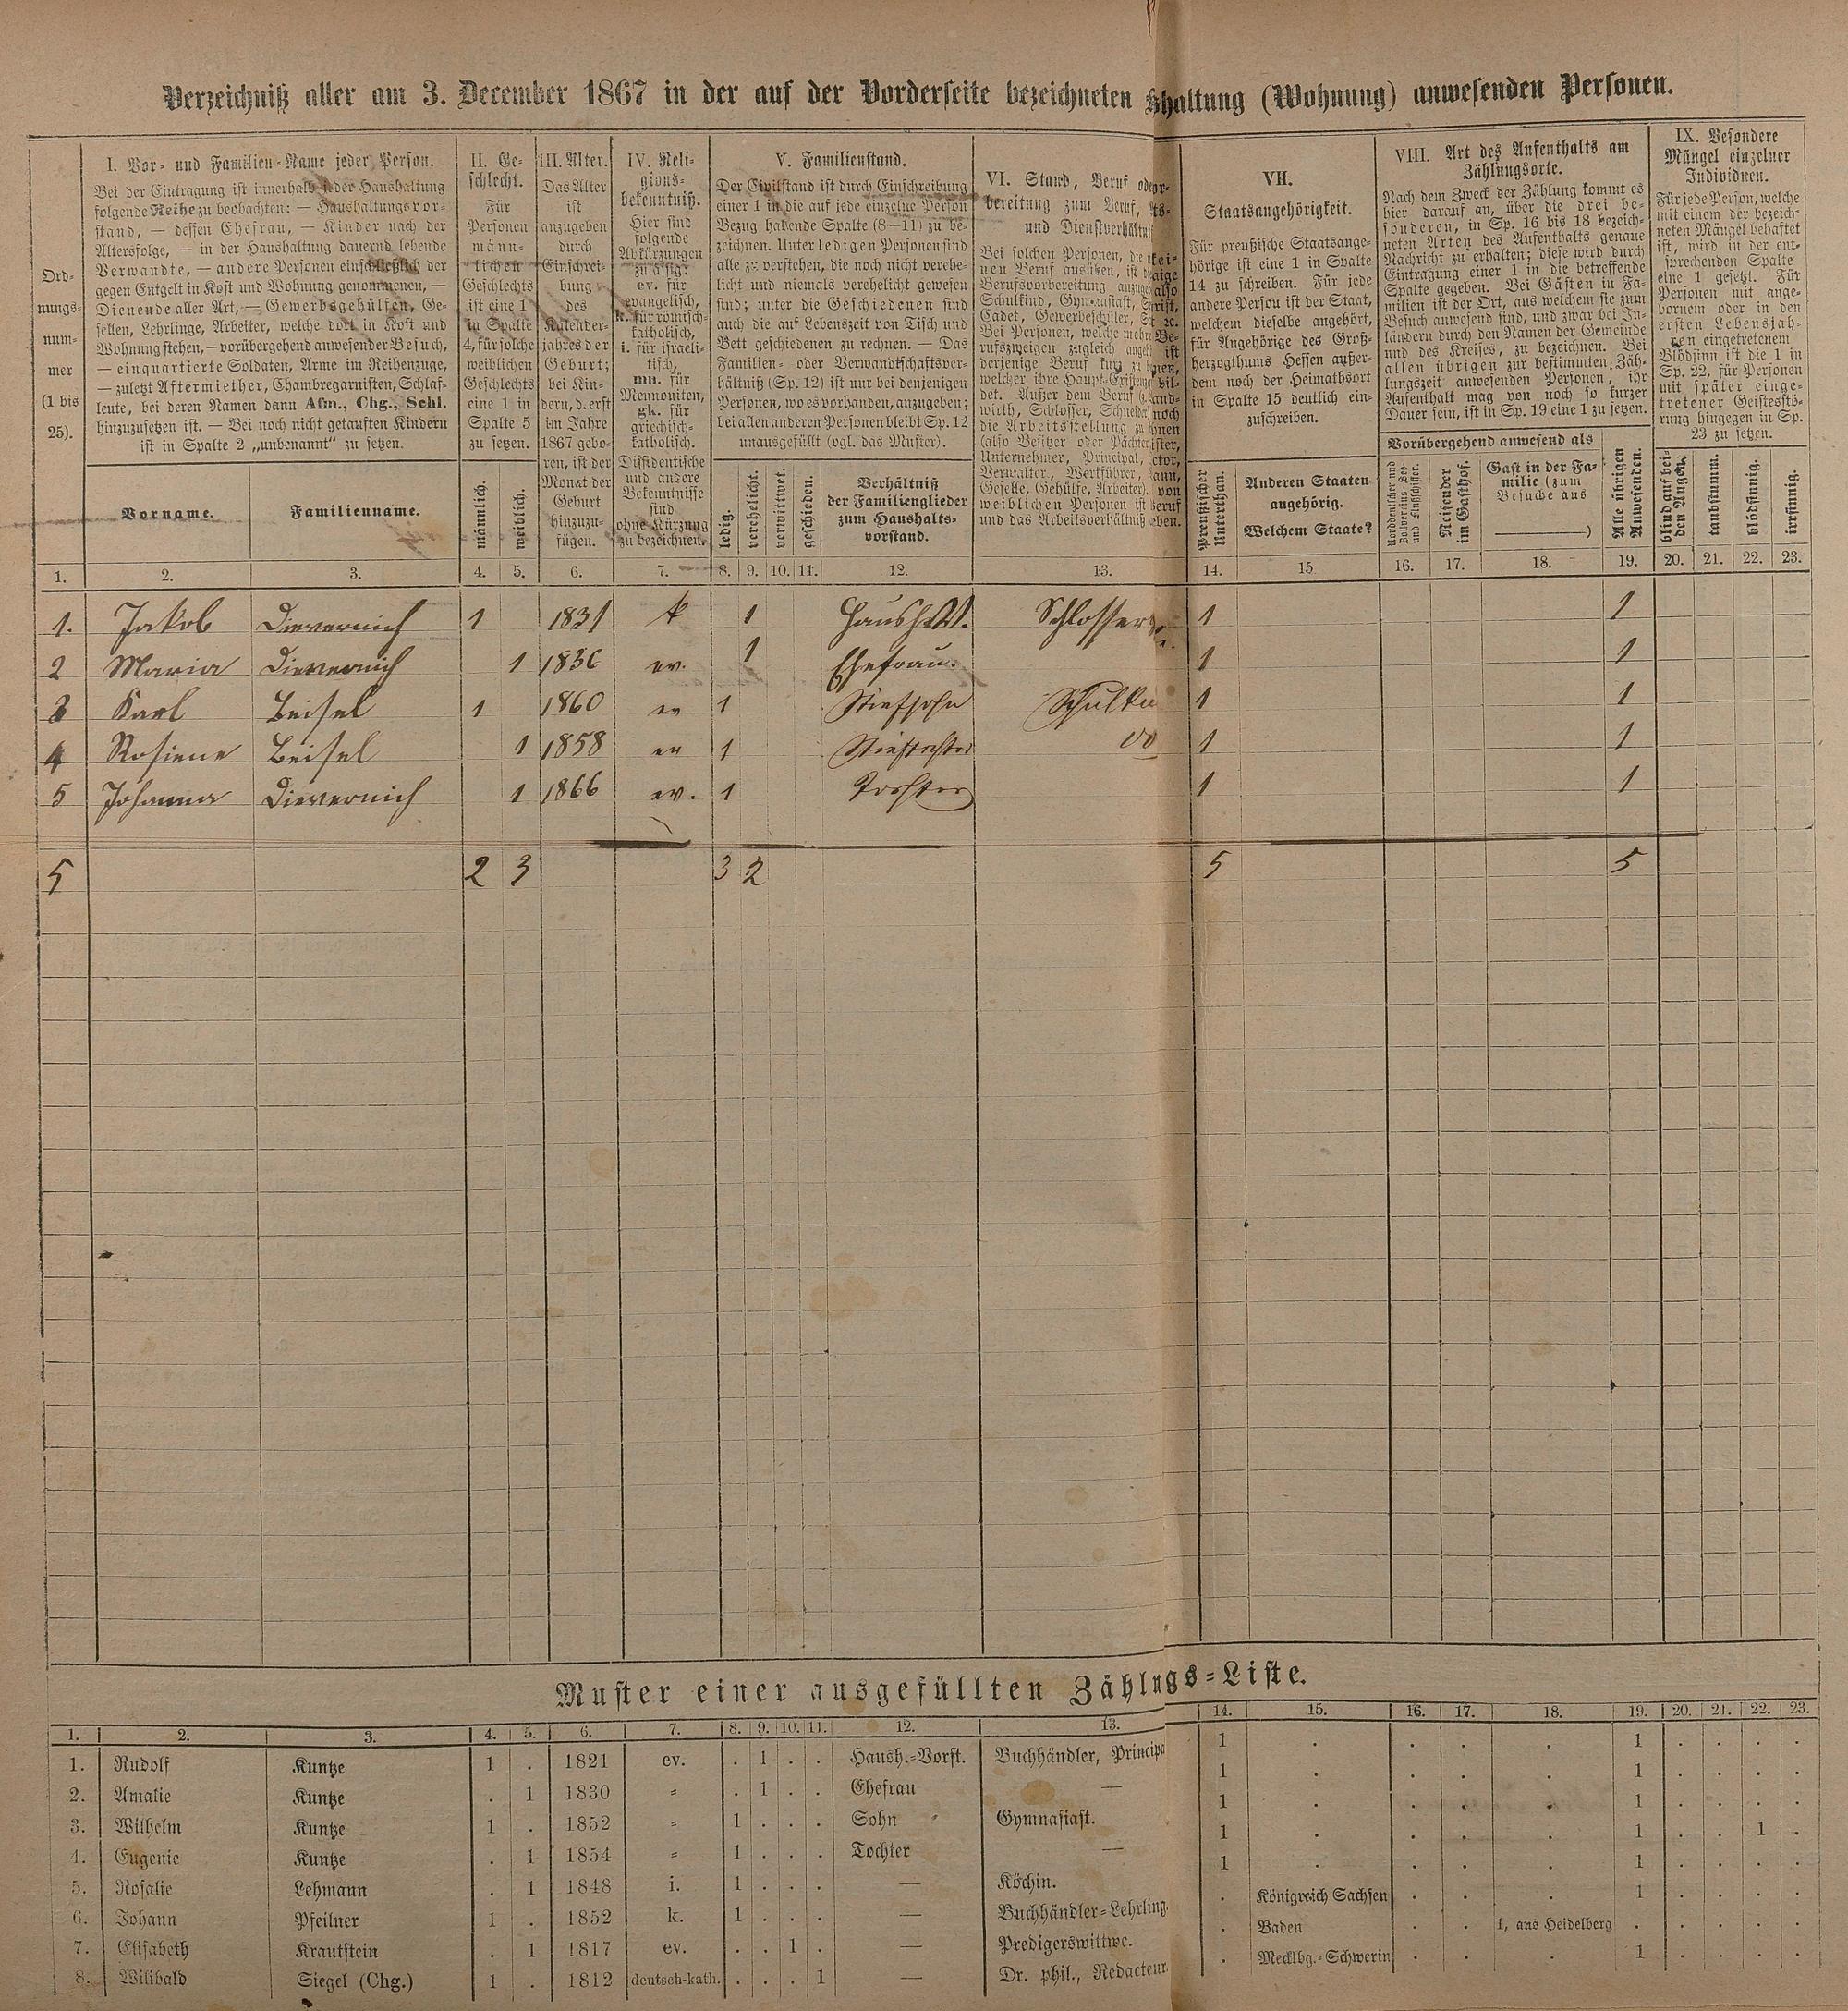 Verzeichniß aller am 3. December 1867 in der auf der Vorderseite bezeichneten shaltung (Wohnung) anwesenden Personen.
Ord-
nungs-
num-
mer
(1 bis
25).
I. Vor- und Familien-Name jeder Person.
Bei der Eintragung ist innerhalb jeder Haushaltung
folgende Reihe zu beobachten: — Haushaltungsvor-
stand, — dessen Ehefrau, — Kinder nach der
Altersfolge, — in der Haushaltung dauernd lebende
Verwandte, — andere Personen einschließlich der
gegen Entgelt in Kost und Wohnung genommenen, —
Dienende aller Art, — Gewerbsgehülfen, Ge-
sellen, Lehrlinge, Arbeiter, welche dort in Kost und
Wohnung stehen, — vorübergehend anwesender Besuch,
— einquartierte Soldaten, Arme im Reihenzuge,
— zuletzt Aftermiether, Chambregarnisten, Schlaf-
leute, bei deren Namen dann Afm., Chg., Schl.
hinzuzusetzen ist. — Bei noch nicht getauften Kindern
ist in Spalte 2 „unbenannt“ zu setzen.
Vorname.
Familienname.
II. Ge-
schlecht.
Für
Personen
männ-
lichen
Geschlechts
ist eine 1
in Spalte
4, für solche
weiblichen
Geschlechts
eine 1 in
Spalte 5
zu setzen.
männlich.
weiblich.
III. Alter.
Das Alter
ist
anzugeben
durch
Einschrei-
bung
des
Kalender-
jahres der
Geburt;
bei Kin-
dern, d. erst
im Jahre
1867 gebo-
ren, ist der
Monat der
Geburt
hinzuzu-
fügen.
IV. Reli-
gions-
bekenntniß.
Hier sind
folgende
Abkürzungen
zulässig:
ev. für
evangelisch,
k. für römisch-
katholisch,
i. für israeli-
tisch,
mn. für
Mennoniten,
gk. für
griechisch-
katholisch.
Dissidentische
und andere
Bekenntnisse
sind
ohne Kürzung
zu bezeichnen.
V. Familienstand.
Der Civilstand ist durch Einschreibung
einer 1 in die auf jede einzelne Person
Bezug habende Spalte (8—11) zu be-
zeichnen. Unter ledigen Personen sind
alle zu verstehen, die noch nicht verehe-
licht und niemals verehelicht gewesen
sind; unter die Geschiedenen sind
auch die auf Lebenszeit von Tisch und
Bett geschiedenen zu rechnen. — Das
Familien- oder Verwandtschaftsver-
hältniß (Sp. 12) ist nur bei denjenigen
Personen, wo es vorhanden, anzugeben;
bei allen anderen Personen bleibt Sp. 12
unausgefüllt (vgl. das Muster).
ledig.
verehelicht.
verwittwet.
geschieden.
Verhältniß
der Familienglieder
zum Haushalts-
vorstand.
VI. Stand, Beruf oder
bereitung zum Beruf,
und Dienstverhältniß
Bei solchen Personen, die
nen Beruf ausüben, ist
Berufsvorbereitung
Schulkind, Gymnasiast,
Cadet, Gewerbeschüler,
Bei Personen, welche mehr
rufszweigen zugleich
derjenige Beruf kurz zu
welcher ihre Haupt-Existenz
det. Außer dem Beruf
wirth, Schlosser, Schneider
die Arbeitsstellung zu
(also Besitzer oder Pächter
Unternehmer, Principal,
Verwalter, Werkführer,
Geselle, Gehülfe, Arbeiter).
weiblichen Personen ist
und das Arbeitsverhältniß
VII.
Staatsangehörigkeit.
Für preußische Staatsange-
hörige ist eine 1 in Spalte
14 zu schreiben. Für jede
andere Person ist der Staat,
welchem dieselbe angehört,
für Angehörige des Groß-
herzogthums Hessen außer-
dem noch der Heimathsort
in Spalte 15 deutlich ein-
zuschreiben.
Preußischer
Unterthan.
Anderen Staaten
angehörig.
Welchem Staate?
VIII. Art des Aufenthalts am
Zählungsorte.
Nach dem Zweck der Zählung kommt es
hier darauf an, über die drei be-
sonderen, in Sp. 16 bis 18 bezeich-
neten Arten des Aufenthalts genaue
Nachricht zu erhalten; diese wird durch
Eintragung einer 1 in die betreffende
Spalte gegeben. Bei Gästen in Fa-
milien ist der Ort, aus welchem sie zum
Besuch anwesend sind, und zwar bei In-
ländern durch den Namen der Gemeinde
und des Kreises, zu bezeichnen. Bei
allen übrigen zur bestimmten Zäh-
lungszeit anwesenden Personen, ihr
Aufenthalt mag von noch so kurzer
Dauer sein, ist in Sp. 19 eine 1 zu setzen.
Vorübergehend anwesend als
Norddeutscher und
Zollvereins-See-
und Flußschiffer.
Reisender
im Gasthof.
Gast in der Fa-
milie (zum
Besuche aus
)
Alle übrigen
Anwesenden.
IX. Besondere
Mängel einzelner
Individuen.
Für jede Person, welche
mit einem der bezeich-
neten Mängel behaftet
ist, wird in der ent-
sprechenden Spalte
eine 1 gesetzt. Für
Personen mit ange-
bornem oder in den
ersten Lebensjah-
ren eingetretenem
Blödsinn ist die 1 in
Sp. 22, für Personen
mit später einge-
tretener Geistesstö-
rung hingegen in Sp.
23 zu setzen.
blind auf bei-
den Augen.
taubstumm.
blödsinnig.
irrsinnig.
1. 2. 3. 4. 5. 6. 7. 8. 9. 10. 11. 12. 13. 14. 15 16. 17. 18. 19. 20. 21. 22. 23.
1. Jakob Dievernich 1 1831 k 1 Haush.V. Schlosser 1 1
2 Maria Dievernich 1 1836 ev. 1 Ehefrau. 1 1
3 Karl Beisel 1 1860 ev 1 Stiefsohn Schulkn 1 1
4 Rosiene Beisel 1 1858 ev 1 Stieftochter do 1 1
5 Johanna Dievernich 1 1866 ev. 1 Tochter 1 1
5 2 3 3 2 5 5
Muster einer ausgefüllten Zählngs-Liste.
1. 2. 3. 4. 5. 6. 7. 8. 9. 10. 11. 12. 13. 14. 15. 16. 17. 18. 19. 20. 21. 22. 23.
1. Rudolf Kuntze 1 . 1821 ev. . 1 . . Haush.-Vorst. Buchhändler, Princip 1 . . . . 1 . . . .
2. Amalie Kuntze . 1 1830 „ . 1 . . Ehefrau — 1 . . . . 1 . . . .
3. Wilhelm Kuntze 1 . 1852 „ 1 . . . Sohn Gymnasiast. 1 . . . . 1 . . . .
4. Eugenie Kuntze . 1 1854 „ 1 . . . Tochter — 1 . . . . 1 . . 1 .
5. Rosalie Lehmann . 1 1848 i. 1 . . . — Köchin. 1 . . . . 1 . . . .
6. Johann Pfeilner 1 . 1852 k. 1 . . . — Buchhändler-Lehrling. . Königreich Sachsen . . . 1 . . . .
7. Elisabeth Krautstein . 1 1817 ev. . . 1 . — Predigerswittwe. . Baden . . 1, aus Heidelberg . . . . .
8. Wilibald Siegel (Chg.) 1 . 1812 deutsch-kath. . . . 1 — Dr. phil., Redacteur. . Mecklbg.-Schwerin . . . 1 . . . .